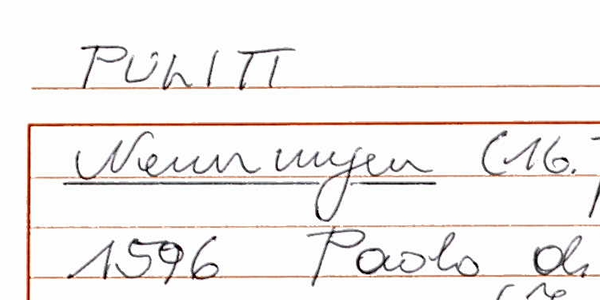 PULITI
Nennungen (16.
1596 Paolo di